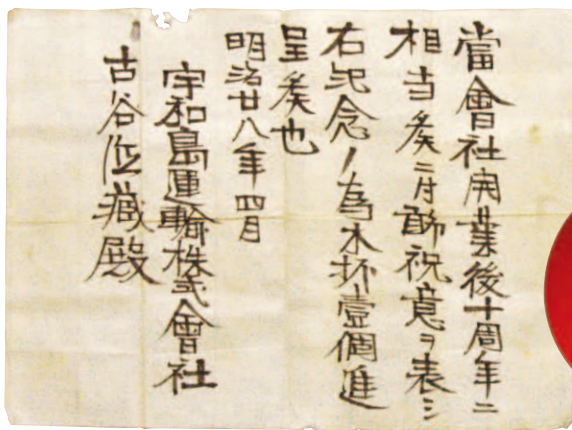 當會社開業後十周年ニ
相当候ニ付聊祝意ヲ表シ
右記念ノ為木杯壹個進
呈候也
明治廿八年四月
宇和島運輸株式會社
古谷 藏殿